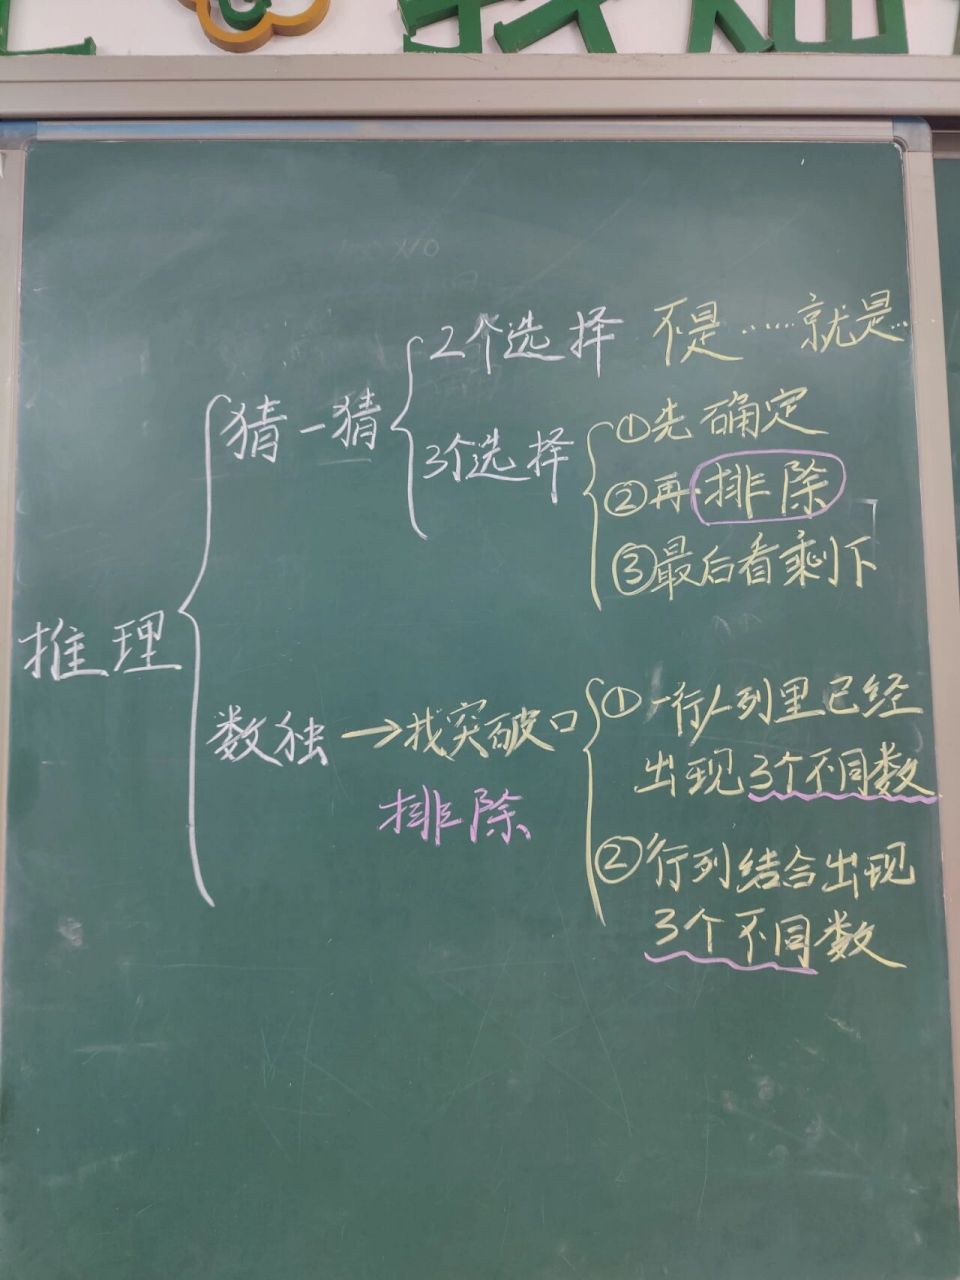 2个选择 不是……就是…
猜一猜
3个选择
①先确定
②再排除
③最后看剩下
推理
数独→找突破口
排除
①一行/列里已经
出现3个不同数
②行列结合出现
3个不同数